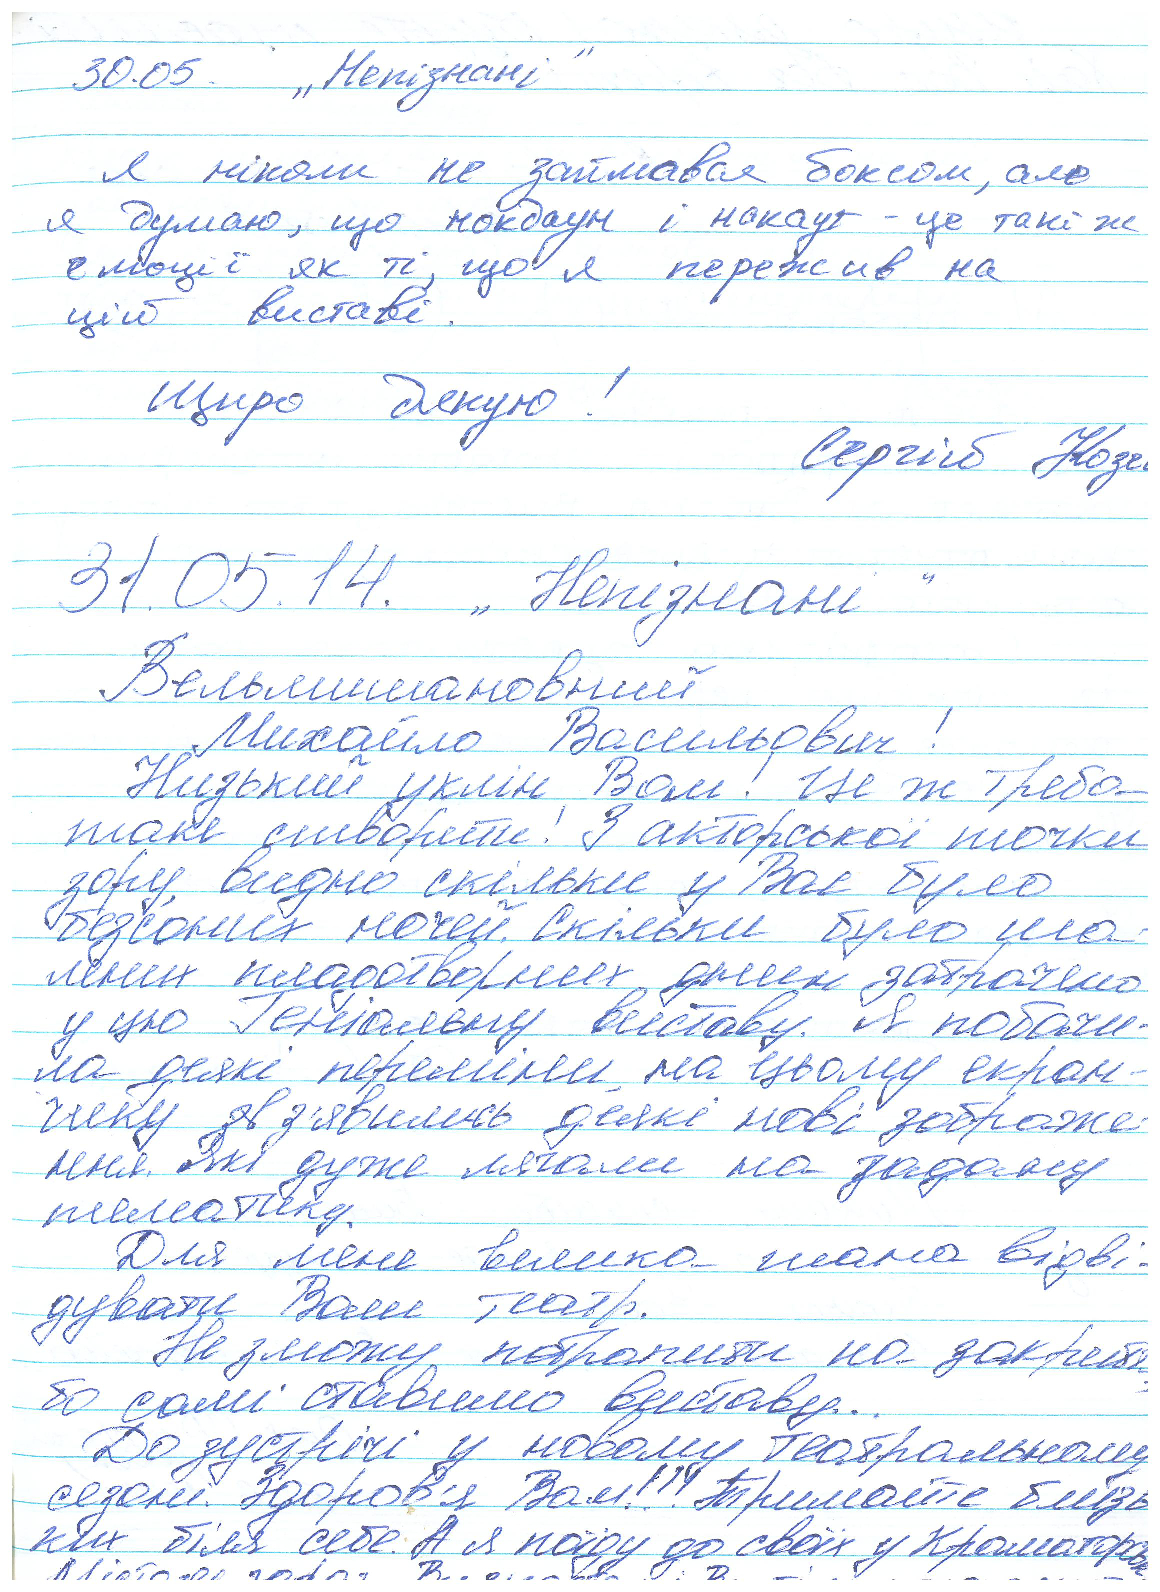 30.05. „Непізнані"
Я ніколи не займався боксом, але
я думаю, що нокдаун і нокаут - це такі ж
емоції як ті, що я пережив на
цій виставі.
Щиро дякую!
Сергій
31.05.14. „Непізнані"
Вельмишановний
Михайло Васильович!
Низький уклін Вам! Це ж треба
таке створити! З акторської точки
зору видно скільки у Вас було
безсоних ночей. Скільки було ша-
лених плодотворних днин затрачено
у цю Геніальну виставу. Я побачи-
ла деякі переміни на цьому екран-
чику з'явились деякі нові зображе-
ння. Які дуже лягали на задану
тематику.
Для мене велика шана відві-
дувати Ваш театр.
Не зможу потрапити на
бо самі ставимо виставу...
До зустрічі у новому театральному
сезоні. Здоров'я Вам!!! Тримайте близь
ких біля себе. А я поїду до своїх у